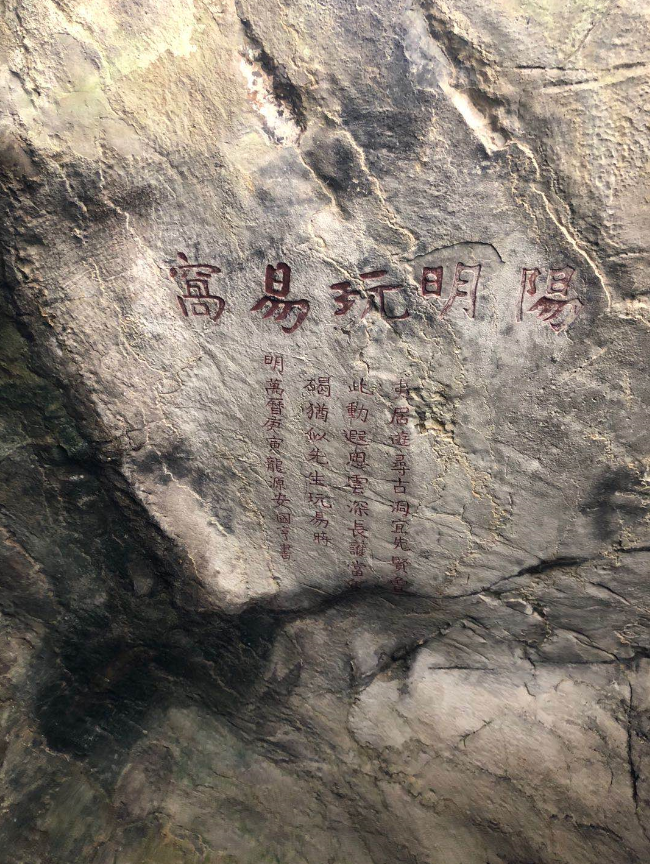 陽明玩易窩
夷居遊尋古洞宜先賢曾
此動遐思雲深長護當
碣猶似先生玩易時
明萬曆庚寅龍源安國亨書